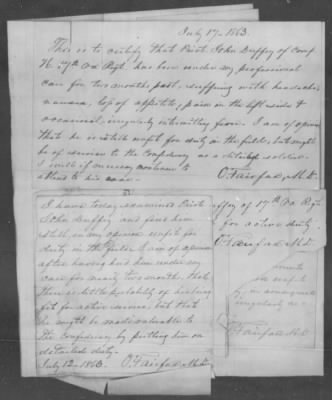 July 17 - 1863.
This is to certify that Privt John Duffey of Comp
H. 17th Va Regt. has been under my professional
care for two months past, suffering with headache
nausea, loss of appetite, pain in the left side &
occasional, irregularly intermitting fever. I am of opinion
that he is unfit for duty in the field, but might
be of service to the Confederacy as a detailed soldier.
I will if necessary continue to
attend to his case. O. Fairfax M.D.
I have today examined Privt
John Duffey and find him
still, in my opinion unfit for
duty in the field. I am of opinion
after having had him under my
care for nearly two months, that
there is little probability of his being
fit for active service, but that
he might be made valuable to
the Confederacy by putting him on
detailed duty.
July 12 - 1863. O. Fairfax M.D.
ffey of 17th Va Regt.
for active duty.
O. Fairfax M.D.
unfit
by, in consequence
irregularity
O. Fairfax M.D.